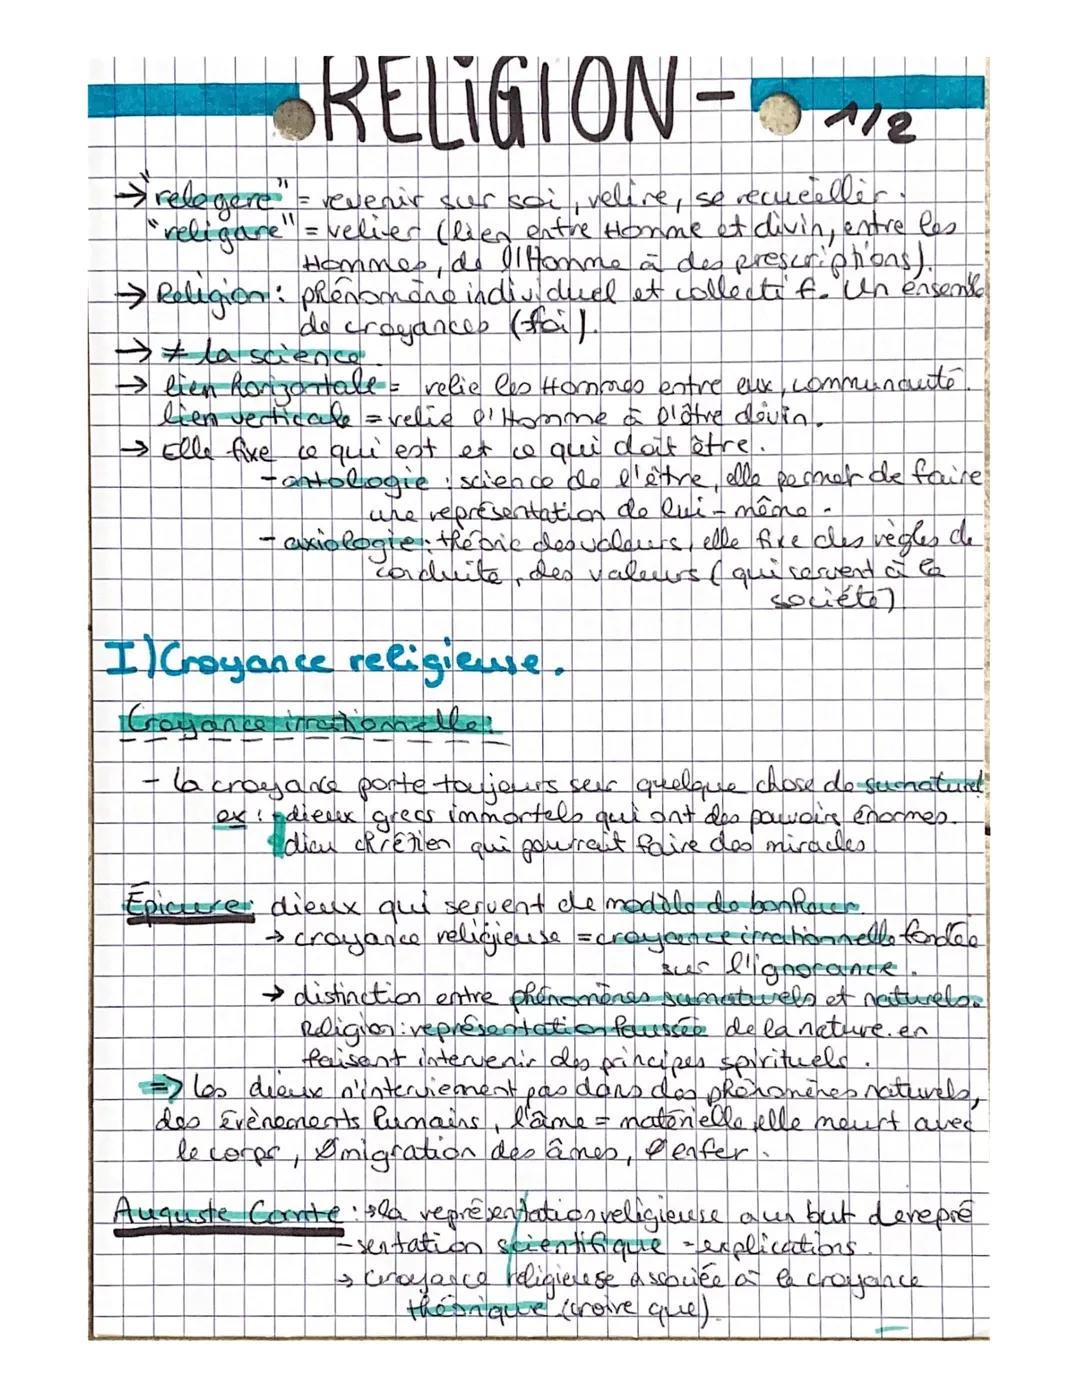 RELIGION - 1/2
→ "relegere" = revenir sur soi, relire, se recueillir.
"religare" = relier (lien entre Homme et divin, entre les
Hommes, de l'Homme à des prescriptions).
→ Religion : phénomène individuel et collectif. Un ensemble
de croyances (foi).
→ ≠ la science.
→ lien horizontale = relie les Hommes entre eux, communauté.
lien verticale = relie l'Homme à l'être divin.
→ Elle fixe ce qui est et ce qui doit être.
- ontologie : science de l'être, elle permet de faire
une représentation de lui-même.
- axiologie : théorie des valeurs, elle fixe des règles de
conduite, des valeurs (qui servent à la
société)
I) Croyance religieuse.
Croyance irrationnelle:
- la croyance porte toujours sur quelque chose de surnaturel
ex : dieux grecs immortels qui ont des pouvoirs énormes.
dieu chrétien qui pourrait faire des miracles
Épicure: dieux qui servent de modèle de bonheur.
→ croyance religieuse = croyance irrationnelle fondée
sur l'ignorance.
→ distinction entre phénomènes surnaturels et naturels.
Religion : représentation faussée de la nature. en
faisant intervenir des principes spirituels.
=> Les dieux n'interviement pas dans des phénomènes naturels,
des évènements humains, l'âme = matérielle, elle meurt avec
le corps, Ø migration des âmes, Ø enfer.
Auguste Comte : la représentation religieuse a un but de repré
-sentation scientifique - explications.
→ croyance religieuse associée à la croyance
théorique (croire que).